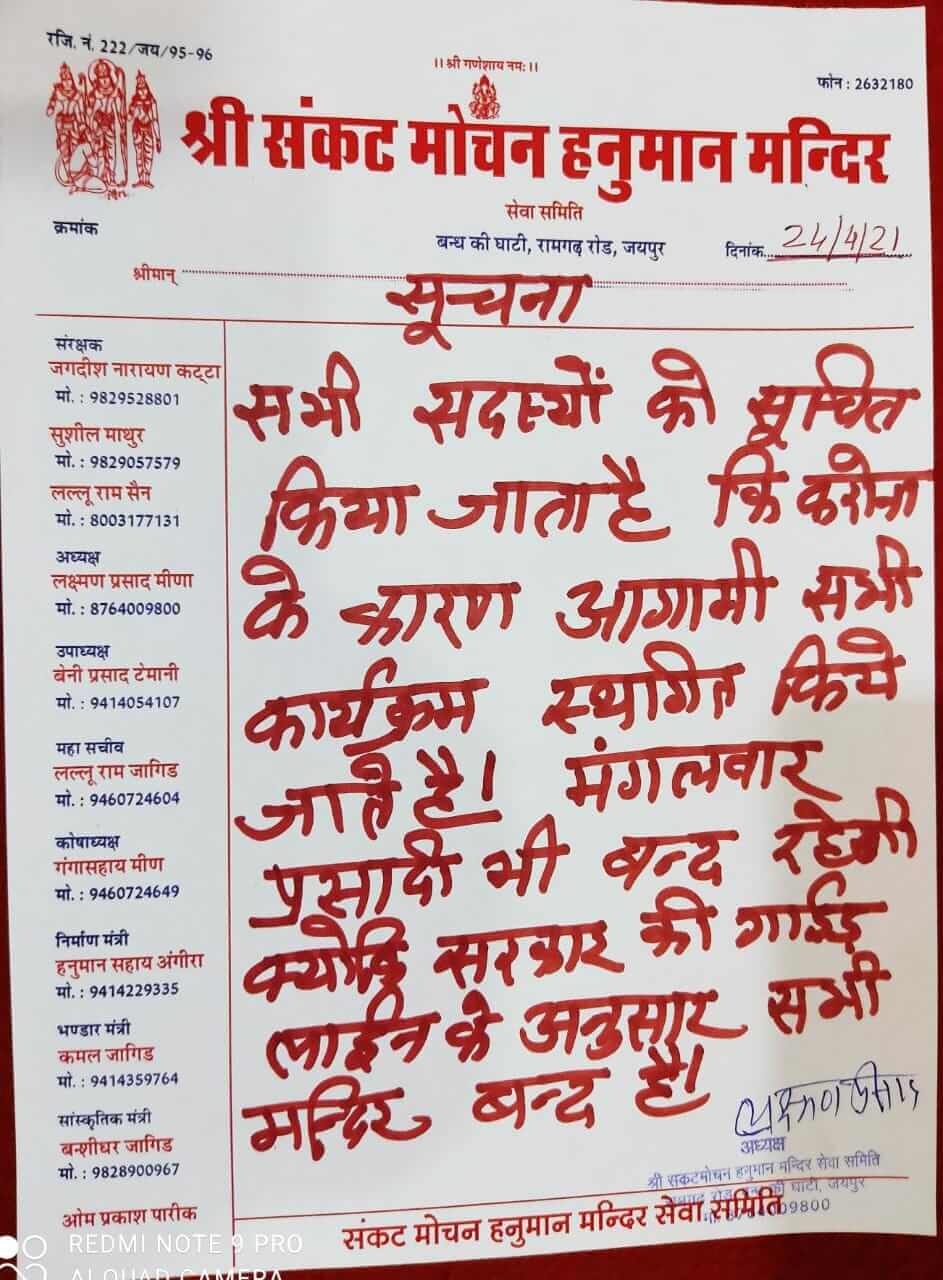 रजि. नं. 222/जय/95-96
।। श्री गणेशाय नमः।।
फोन : 2632180
श्री संकट मोचन हनुमान मन्दिर
सेवा समिति
क्रमांक
बन्ध की घाटी, रामगढ़ रोड, जयपुर
दिनांक 24/4/21
श्रीमान्
सूचना
संरक्षक
जगदीश नारायण कट्टा
मो. : 9829528801
सुशील माथुर
मो. : 9829057579
लल्लू राम सैन
मो. : 8003177131
अध्यक्ष
लक्ष्मण प्रसाद मीणा
मो. : 8764009800
उपाध्यक्ष
बेनी प्रसाद टेमानी
मो. : 9414054107
महा सचीव
लल्लू राम जागिड
मो. : 9460724604
कोषाध्यक्ष
गंगासहाय मीण
मो. : 9460724649
निर्माण मंत्री
हनुमान सहाय अंगीरा
मो. : 9414229335
भण्डार मंत्री
कमल जागिड
मो. : 9414359764
सांस्कृतिक मंत्री
बन्शीधर जागिड
मो. : 9828900967
ओम प्रकाश पारीक
सभी सदस्यों को सूचित
किया जाता है कि करोना
के कारण आगामी सभी
कार्यक्रम स्थगित किये
जाते है। मंगलवार
प्रसादी भी बन्द रहेगी
क्योकि सरकार की गाईड
लाईन के अनुसार सभी
मन्दिर बन्द है।
अध्यक्ष
श्री सकटमोचन हनुमान मन्दिर सेवा समिति
रोड, बन्ध की घाटी, जयपुर
मो. 8764009800
संकट मोचन हनुमान मन्दिर सेवा समिति
REDMI NOTE 9 PRO
AI QUAD CAMERA